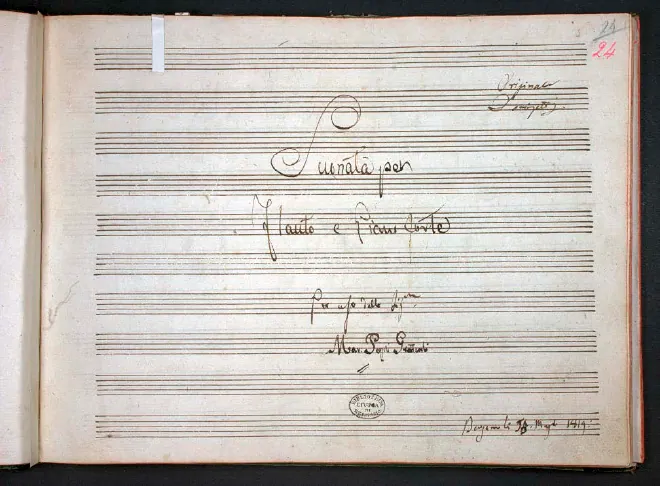 24
Originale
Donizetti
Suonata per
Flauto e Piano Forte
Per uso della Sig.ra
Mar.
BIBLIOTECA
CIVICA
DI
BERGAMO
Bergamo li Magº 1819.